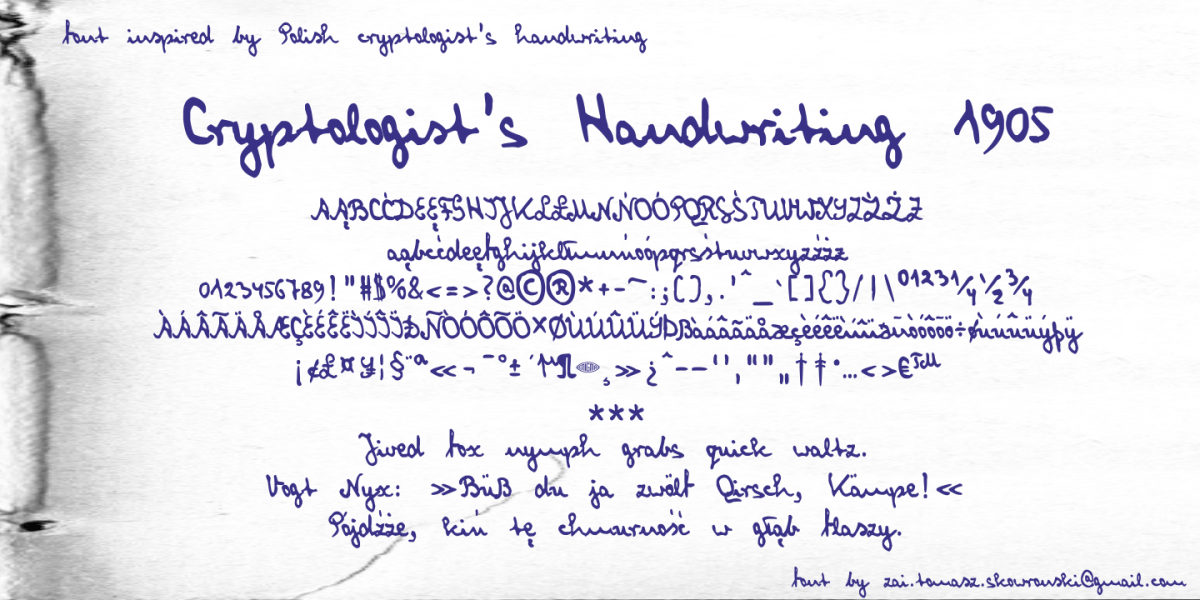 font inspired by Polish cryptologist's handwriting
Cryptologist's Handwriting 1905
AĄBCĆDEĘFGHIJKLŁMNŃOÓPQRSŚTUVWXYZŹŻƵ
aąbcćdeęfghijklłmnńoópqrsśtuvwxyzźżƶ
0123456789!"#$%&<=>?@©®*+-~:;(),.'^_`[]{}/|\⁰¹²³¼½¾
ÀÁÂÃÄÅÆÇÈÉÊËÌÍÎÏÐÑÒÓÔÕÖ×ØÙÚÛÜÝÞßàáâãäåæçèéêëìíîïðñòóôõö÷øùúûüýþÿ
¡¢£¤¥¦§¨ª«¬¯°±´µ¶¸»¿ˆ–—‘’‚“”„†‡•…<>€™
***
Jived fox nymph grabs quick waltz.
Vogt Nyx: »Büß du ja zwölf Qirsch, Kämpe!«
Pójdźże, kiń tę chmurność w głąb flaszy.
font by zai.tomasz.skowronski@gmail.com